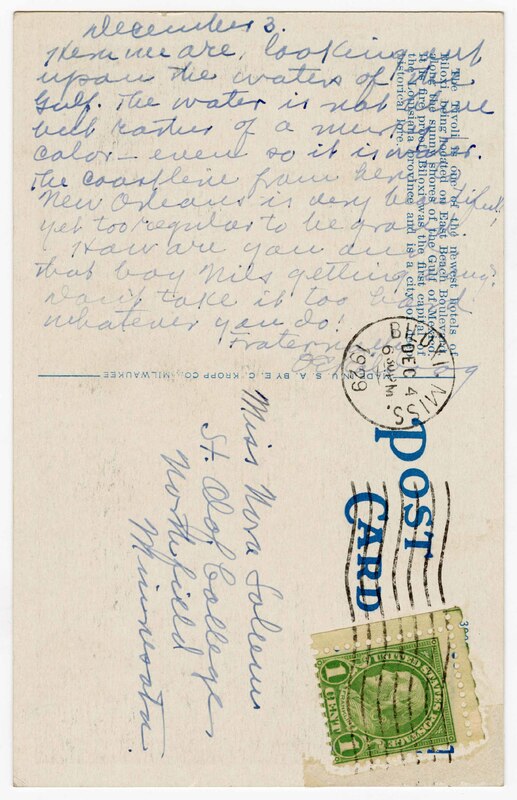 December 3.
Here we are, looking out
upon the waters of the
Gulf. The water is not blue
but rather of a
color – even so it is water.
The coastline from here to
New Orleans is very beautiful
yet too regular to be grand.
How are you and
that boy Nils getting along?
Don't take it too hard
whatever you do!
Fraternally
The Tivoli is one of the newest hotels of
Biloxi, being located on East Beach Boulevard
along the sunny shores of the Gulf of Mexico.
the Louisiana province and is a city of
historical lore.
MADE IN U S A BY E. C. KROPP CO., MILWAUKEE
BILOXI MISS.
DEC 4
6 PM
1929
POST CARD
Miss Nora Solem
St. Olaf College
Northfield
Minnesota.
UNITED STATES POSTAGE
1 CENT 1